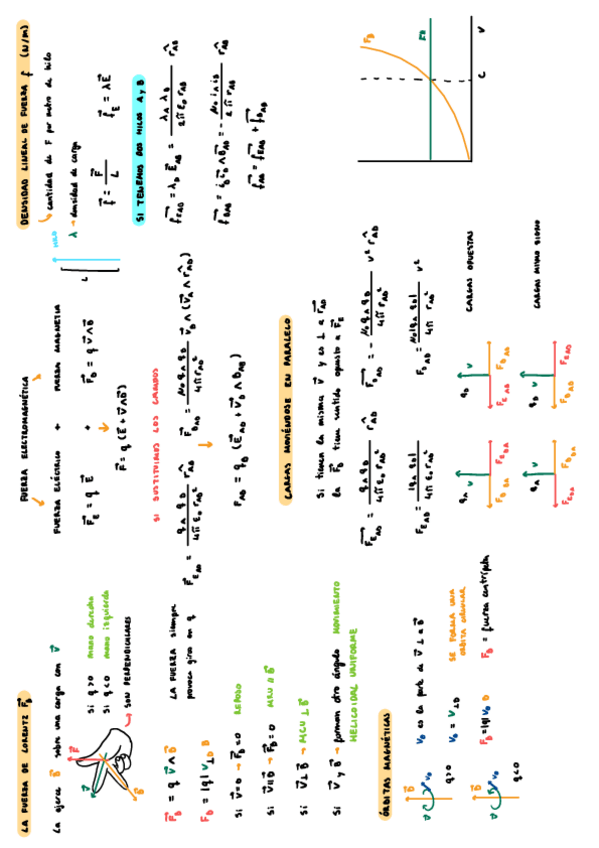 LA FUERZA DE LORENTZ F⃗_B
La ejerce B⃗ sobre una carga con v⃗
F⃗
v⃗
B⃗
si q>0 mano derecha
si q<0 mano izquierda
SON PERPENDICULARES
F⃗_B = q v⃗ ∧ B⃗
LA FUERZA siempre
provoca giros en q
F_B = |q| v_⊥B B
si v⃗=0 → F⃗_B=0 REPOSO
si v⃗∥B⃗ → F⃗_B=0 MRU ∥ B⃗
si v⃗⊥B⃗ → MCU ⊥ B⃗
si v⃗ y B⃗ → forman otro ángulo MOVIMIENTO
HELICOIDAL UNIFORME
ÓRBITAS MAGNÉTICAS
q>0
v_⊥B es la parte de v⃗ ⊥ a B⃗
v_B = v_⊥B
SE FORMA UNA
ORBITA CIRCULAR
q<0
F_B = |q| v_B B
F_B = fuerza centrípeta
FUERZA ELECTROMAGNÉTICA
FUERZA ELÉCTRICO + FUERZA MAGNETIA
F⃗_E = q E⃗ + F⃗_B = q v⃗∧B⃗
F⃗ = q (E + v⃗∧B⃗)
SI SUSTITUIMOS LOS CAMPOS
F⃗_EAB = q_A q_B / 4π ε₀ r_AB² r̂_AB
F⃗_BAB = μ₀ q_A q_B / 4π r_AB² v⃗_B ∧ (v⃗_A ∧ r̂_AB)
F_AB = q_B (E⃗_AB + v⃗_B ∧ B_AB)
CARGAS MOVIÉNDOSE EN PARALELO
Si tienen la misma v⃗ y es ⊥ a r⃗_AB
la F⃗_B tiene sentido opuesto a F⃗_E
F⃗_EAB = q_A q_B / 4π ε₀ r_AB² r̂_AB
F⃗_BAB = - μ₀ q_A q_B / 4π r_AB² v² r̂_AB
F_EAB = |q_A q_B| / 4π ε₀ r_AB²
F_BAB = μ₀ |q_A q_B| / 4π r_AB² v²
q_A v F_EBA F_BBA
q_B v F_EAB F_BAB
CARGAS OPUESTAS
q_A v F_EBA F_BBA
q_B v F_BAB F_EAB
CARGAS MISMO SIGNO
DENSIDAD LINEAL DE FUERZA f (N/m)
cantidad de F por metro de hilo
HILO
λ → densidad de carga
L
f⃗ = F⃗ / L
f⃗_E = λE⃗
SI TENEMOS DOS HILOS A y B
f⃗_EAB = λ_B E⃗_AB = λ_A λ_B / 2π ε₀ r_AB r̂_AB
f⃗_BAB = i_B u⃗_B ∧ B⃗_AB = - μ₀ i_A i_B / 2π r_AB r̂_AB
f⃗_AB = f⃗_EAB + f⃗_BAB
F_B
F_E
C
v